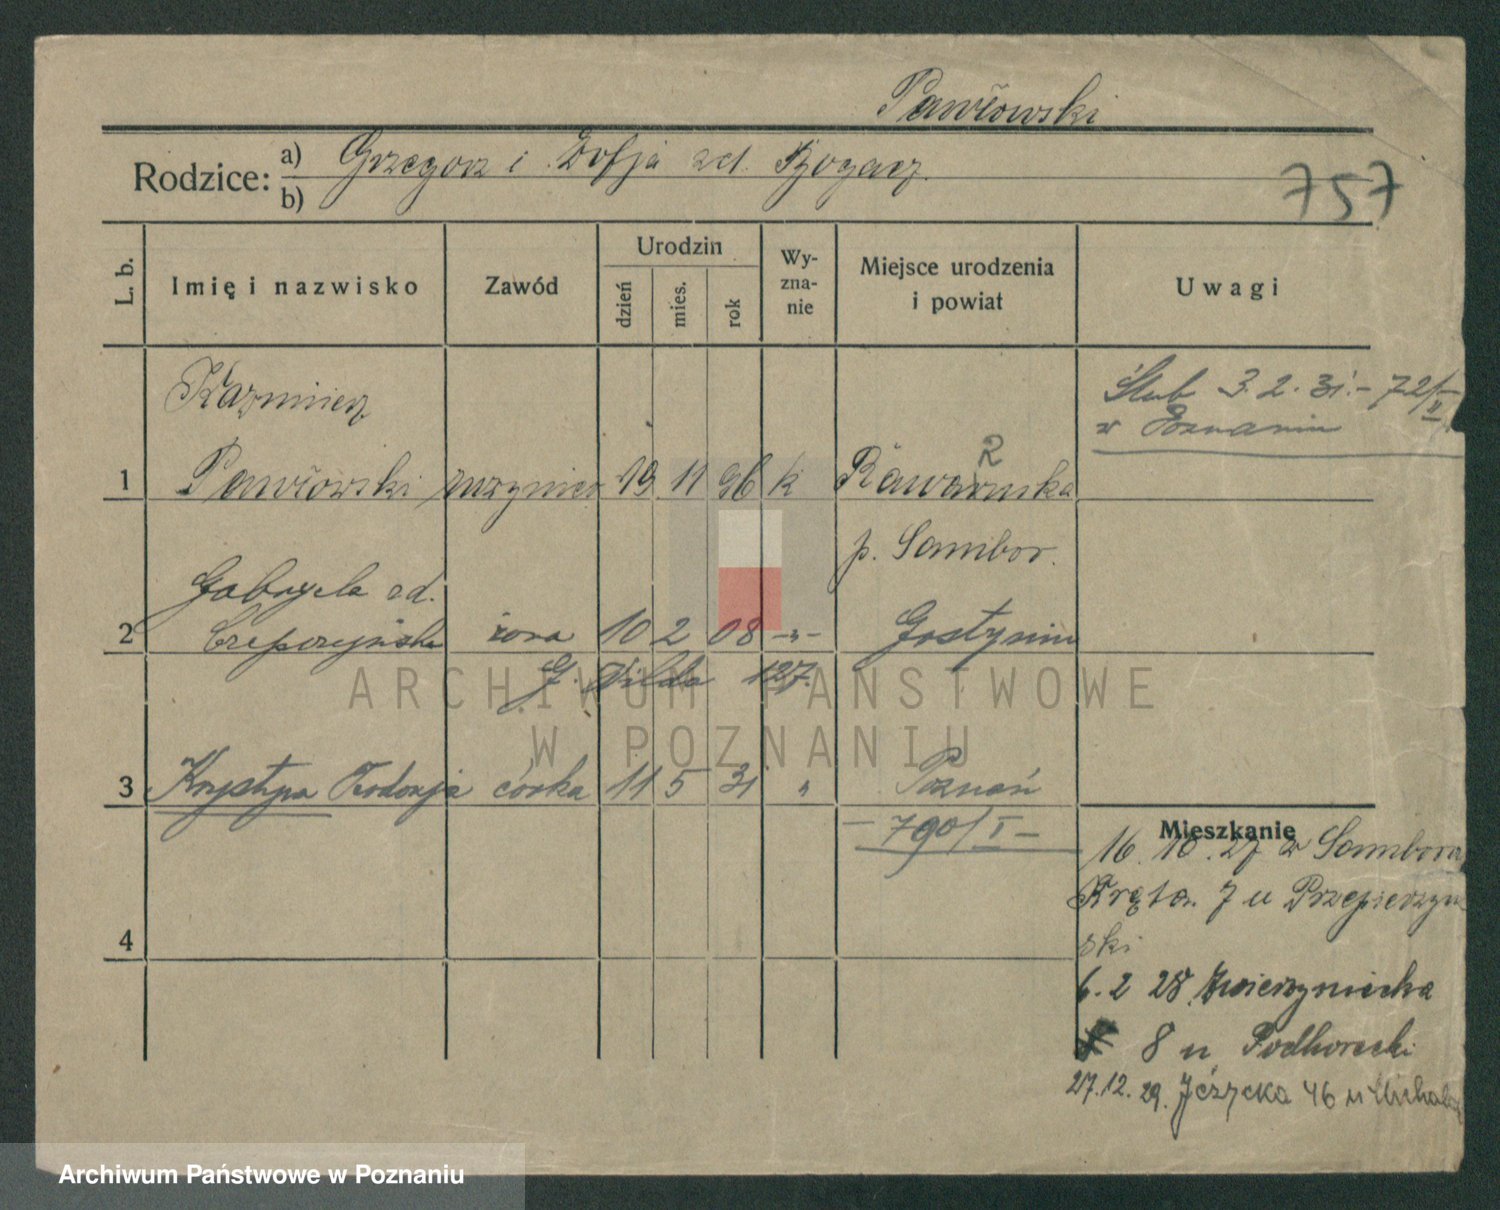 Pawłowski
Rodzice: a) Grzegorz i Zofja zd. Bogacz.
b)
757
L. b.
Imię i nazwisko
Zawód
Urodzin
dzień
mies.
rok
Wy-
zna-
nie
Miejsce urodzenia
i powiat
Uwagi
Kazmierz
Ślub 3.2.31.- 72/II
w Poznaniu
1 Pawłowski inżynier 19 11 96 k Rawaruska
R
p. Sambor.
Gabryela zd.
2 żona 10 2 08 -"- Gostynin
G. Wilda 127.
3 Krystyna Teodozja córka 11 5 31 " Poznań
- 790/I -
Mieszkanie
16.10.27 z Sambora
Kręta 7 u Przepierzyń
ski
4
6.2 28 Zwierzyniecka
8 u Podhorecki
27.12.29. Jeżycka 46 u
ARCHIWUM PAŃSTWOWE
W POZNANIU
Archiwum Państwowe w Poznaniu